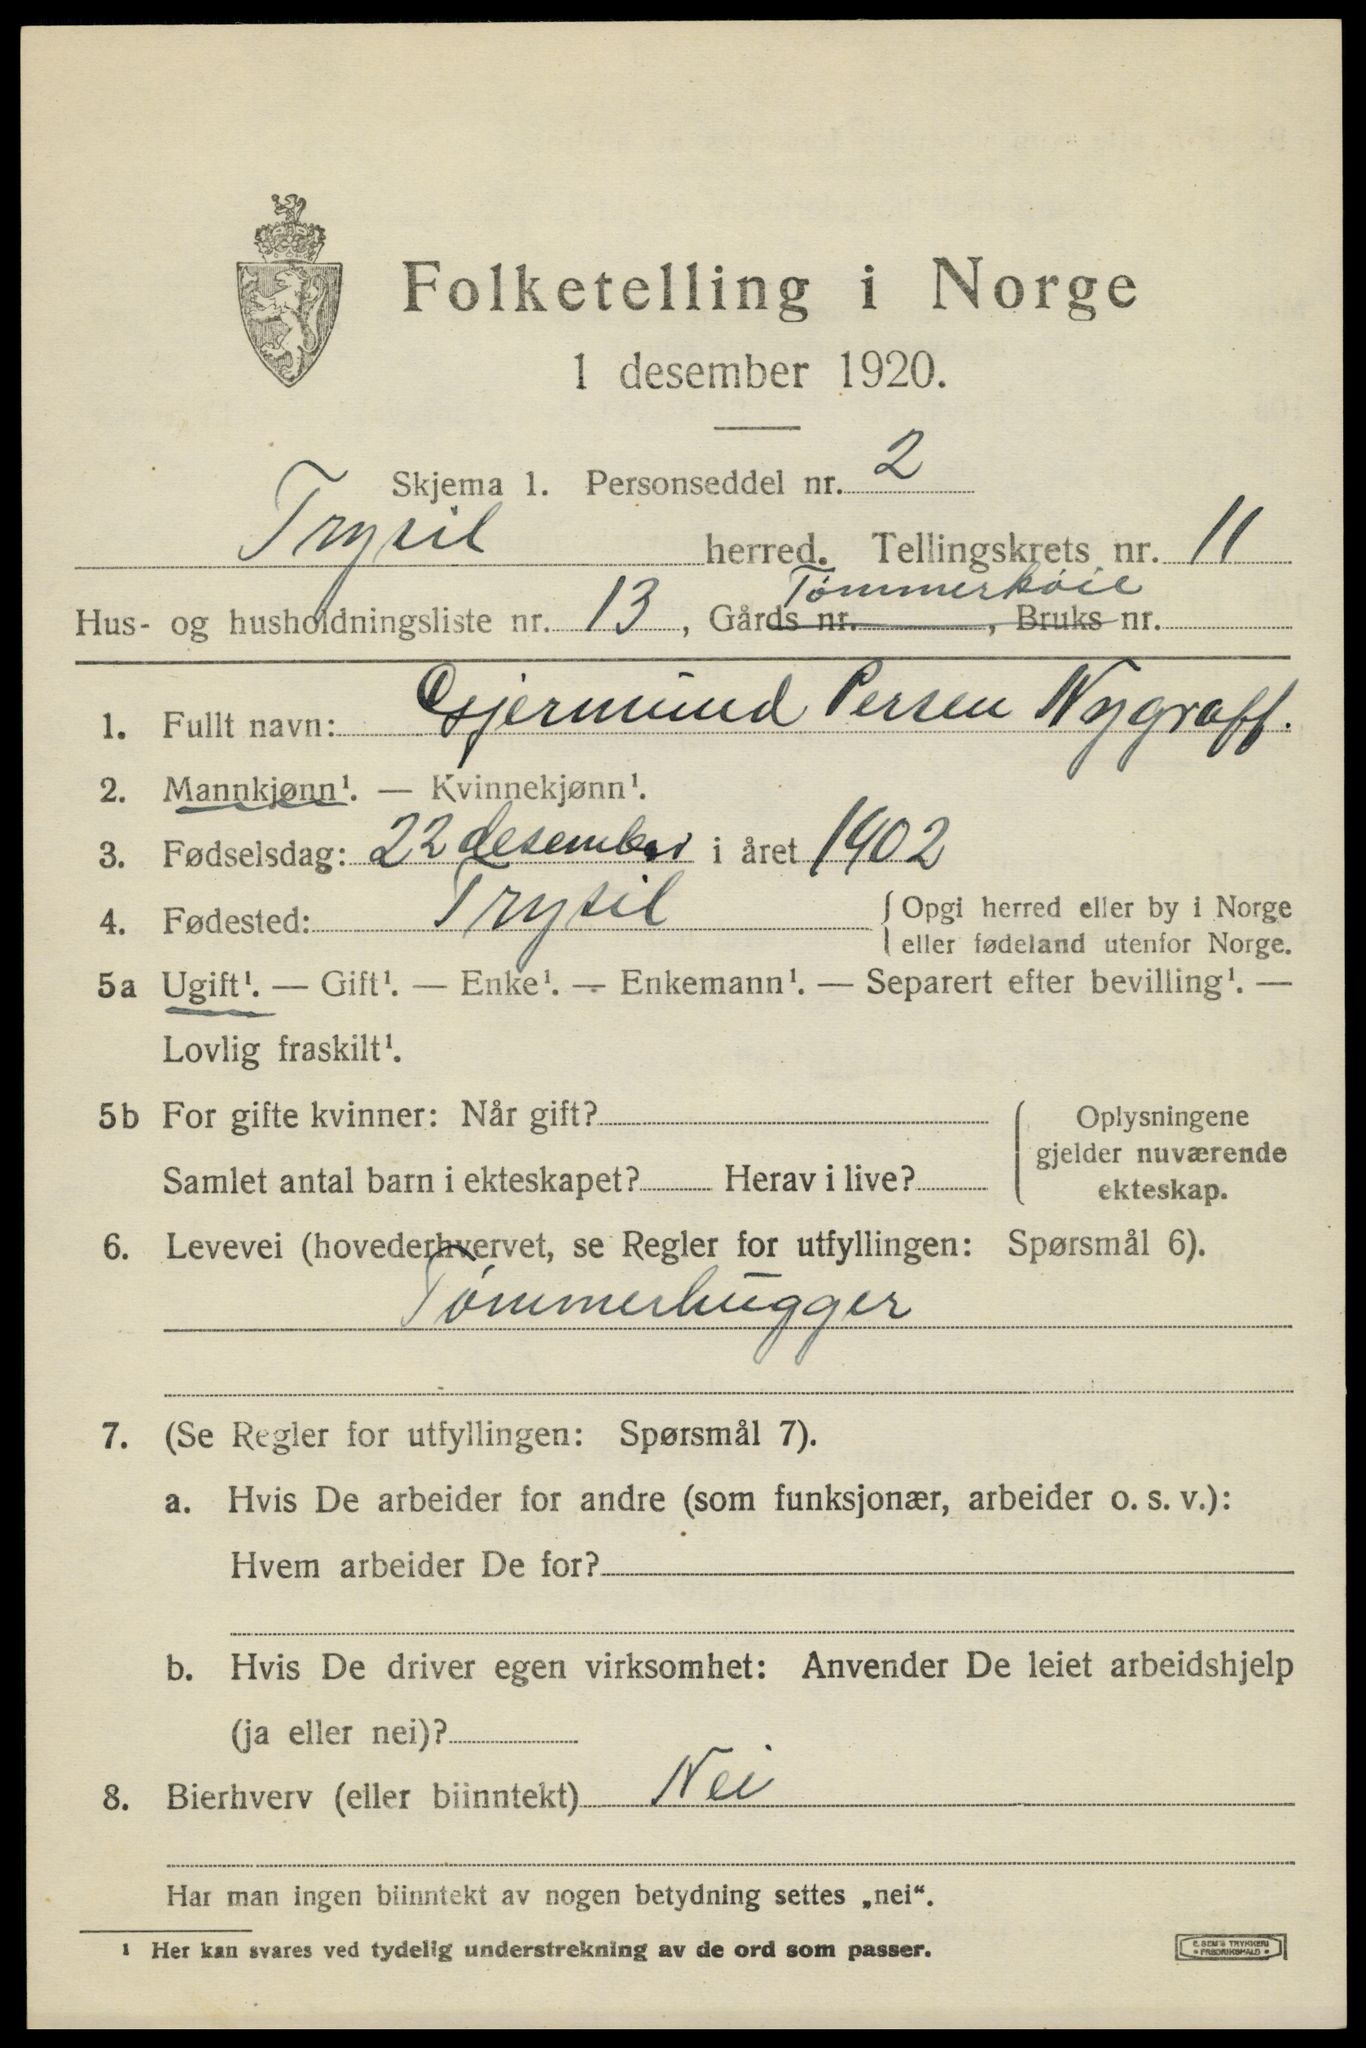 Folketelling i Norge
1 desember 1920.
Skjema 1. Personseddel nr. 2
Trysil herred. Tellingskrets nr. 11
Tømmerkøie
Hus- og husholdningsliste nr. 13, Gårds nr. , Bruks nr.
1. Fullt navn: Gjermund Persen Nygraff.
2. Mannkjønn¹. — Kvinnekjønn¹.
3. Fødselsdag: 22 desember i året 1902
4. Fødested: Trysil { Opgi herred eller by i Norge
eller fødeland utenfor Norge.
5a Ugift¹. — Gift¹. — Enke¹. — Enkemann¹. — Separert efter bevilling¹. —
Lovlig fraskilt¹.
5b For gifte kvinner: Når gift? { Oplysningene
gjelder nuværende
Samlet antal barn i ekteskapet? Herav i live? ekteskap.
6. Levevei (hovederhvervet, se Regler for utfyllingen: Spørsmål 6).
Tømmerhugger
7. (Se Regler for utfyllingen: Spørsmål 7).
a. Hvis De arbeider for andre (som funksjonær, arbeider o. s. v.):
Hvem arbeider De for?
b. Hvis De driver egen virksomhet: Anvender De leiet arbeidshjelp
(ja eller nei)?
8. Bierhverv (eller biinntekt) Nei
Har man ingen biinntekt av nogen betydning settes „nei“.
¹ Her kan svares ved tydelig understrekning av de ord som passer.
E. SEM'S TRYKKERI
• FREDRIKSHALD •